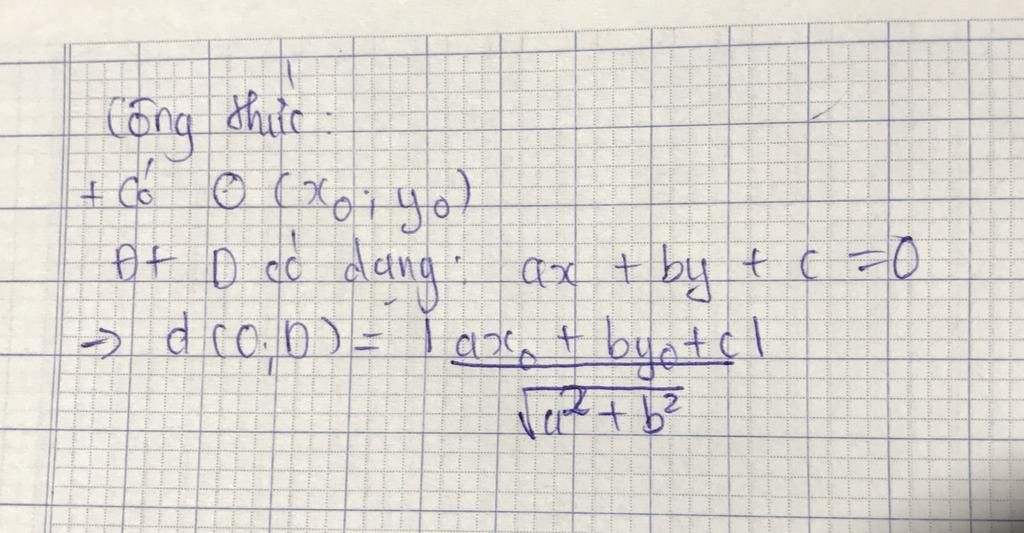 Công thức:
+ Có O (x₀; y₀)
Đt D có dạng: ax + by + c = 0
=> d (O; D) = |ax₀ + by₀ + c|
√a² + b²